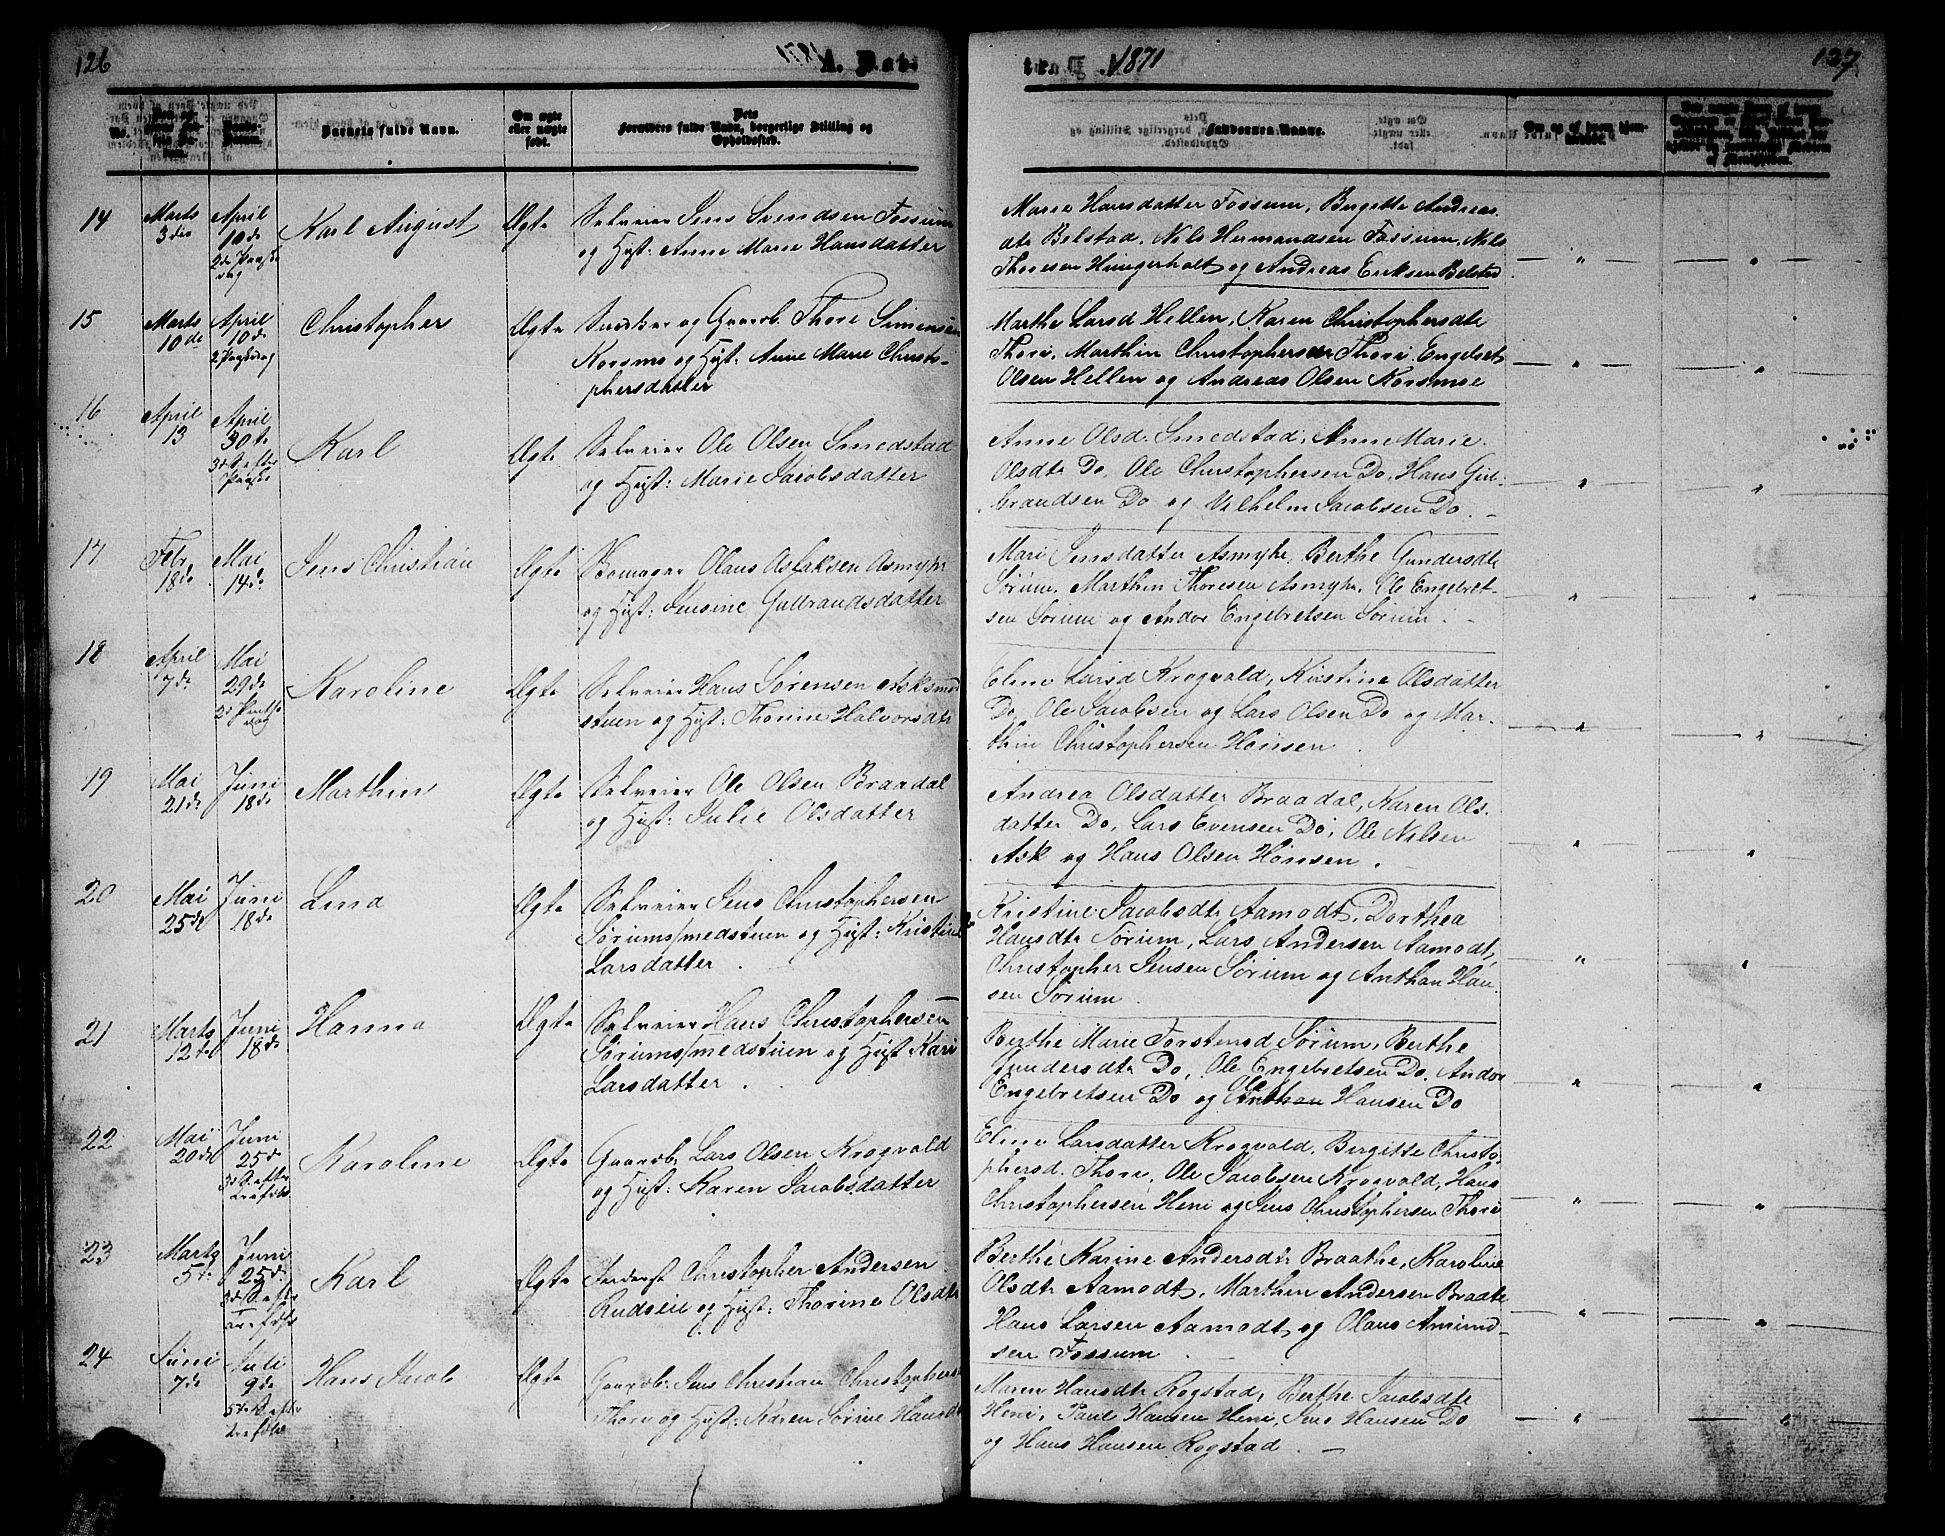 126
1871
A. Døb-
te. 1871
127
No.
Barnets fulde Navn.
Om ægte
eller uægte
født.
Forældres fulde Navn, borgerlige Stilling og
Opholdssted.
Faddernes Navne.
14
Marts
3die
April
10de
2de Paaske
dag
Karl August
Ægte
Selveier Jens Svendsen Fossum
og Hust: Anne Marie Hansdatter
Marie Hansdatter Fossum, Birgitte Andreas
dtr Belstad, Nils Hermandsen Fossum, Nils
Thoresen Hungerholt og Andreas Eriksen Belstad
15
Marts
10de
April
10de
Christopher
Ægte
Snedker og Gaardb. Thore Simensen
Korsmo og Hust: Anne Marie Christo-
phersdatter
Marthe Larsd Hellen, Karen Christophersdtr
Thori, Marthin Christophersen Thori, Engebret
Olsen Hellen og Andreas Olsen Korsmoe
16
April
13
April
30te
3de S. efter
Paaske
Karl
Ægte
Selveier Ole Olsen Smedstad
og Hust: Marie Jacobsdatter
Anne Olsd. Smedstad, Anne Marie
Olsdtr Do, Ole Christophersen Do, Hans Gul-
brandsen Do og Vilhelm Jacobsen Do.
17
Febr
18de
Mai
14de
Jens Christian
Ægte
Skomager Olaus Aslaksen Asmyhr
og Hust: Jensine Gulbrandsdatter
Mari Jensdatter Asmyhr, Berthe Gundersdtr
Sørum, Marthin Thoresen Asmyhr, Ole Engebret-
sen Sørum og Andor Engebretsen Sørum.
18
April
7de
Mai
29de
2den Pintse
dag
Karoline
Ægte
Selveier Hans Sørensen Asksmed
stuen og Hust: Thorine Halvorsdtr
Eline Larsd Krogvold, Kristine Olsdatter
Do, Ole Jacobsen og Lars Olsen Do og Mar-
thin Christophersen Hønsen
19
Mai
21de
Juni
18de
Marthin
Ægte
Selveier Ole Olsen Braadal
og Hust: Julie Olsdatter
Andrea Olsdatter Braadal, Karen Ols-
datter Do, Lars Evensen Do, Ole Nilsen
Ask og Hans Olsen Hønsen.
20
Mai
25de
Juni
18de
Lina
Ægte
Selveier Jens Christophersen
Sørumsmedstuen og Hust: Kristine
Larsdatter.
Kristine Jacobsdtr Aamodt, Dorthea
Hansdtr Sørum, Lars Andersen Aamodt,
Christopher Jensen Sørum og Anthon Han
sen Sørum
21
Marts
12te
Juni
18de
Hanna
Ægte
Selveier Hans Christophersen
Sørumsmedstuen og Hust Kari
Larsdatter.
Berthe Marie Forstmod Sørum, Berthe
Gundersdtr Do, Ole Engebretsen Do, Andor
Engebretsen Do og Ole Anthon Hansen Do
22
Mai
20de
Juni
25de
3die S. efter
Trefold.
Karoline
Ægte
Gaardb. Lars Olsen Krogvold
og Hust: Karen Jacobsdatter
Eline Larsdatter Krogvold, Birgitte Christo
phersd. Thori, Ole Jacobsen Krogvold, Hans
Christophersen Heni og Jens Christophersen Thori
23
Marts
5te
Juni
25de
3die S. efter
Trefold
Karl
Ægte
Inderst Christopher Andersen
Rudseie og Hust: Thorine Olsdtr
Berthe Karine Andersdtr Braathe, Karoline
Olsdtr Aamodt, Marthin Andersen Braate
Hans Larsen Aamodt og Olaus Amund-
sen Fossum
24
Juni
7de
Juli
9de
5te S. efter
Trefold
Hans Jacob
Ægte
Gaardb: Jens Christian Christophers
Thori og Hust: Karen Sørine Hansdtr
Maren Hansdtr Rogstad, Berthe Jacobsdtr
Heni, Paul Hansen Heni, Jens Hansen Do
og Hans Hansen Rogstad.